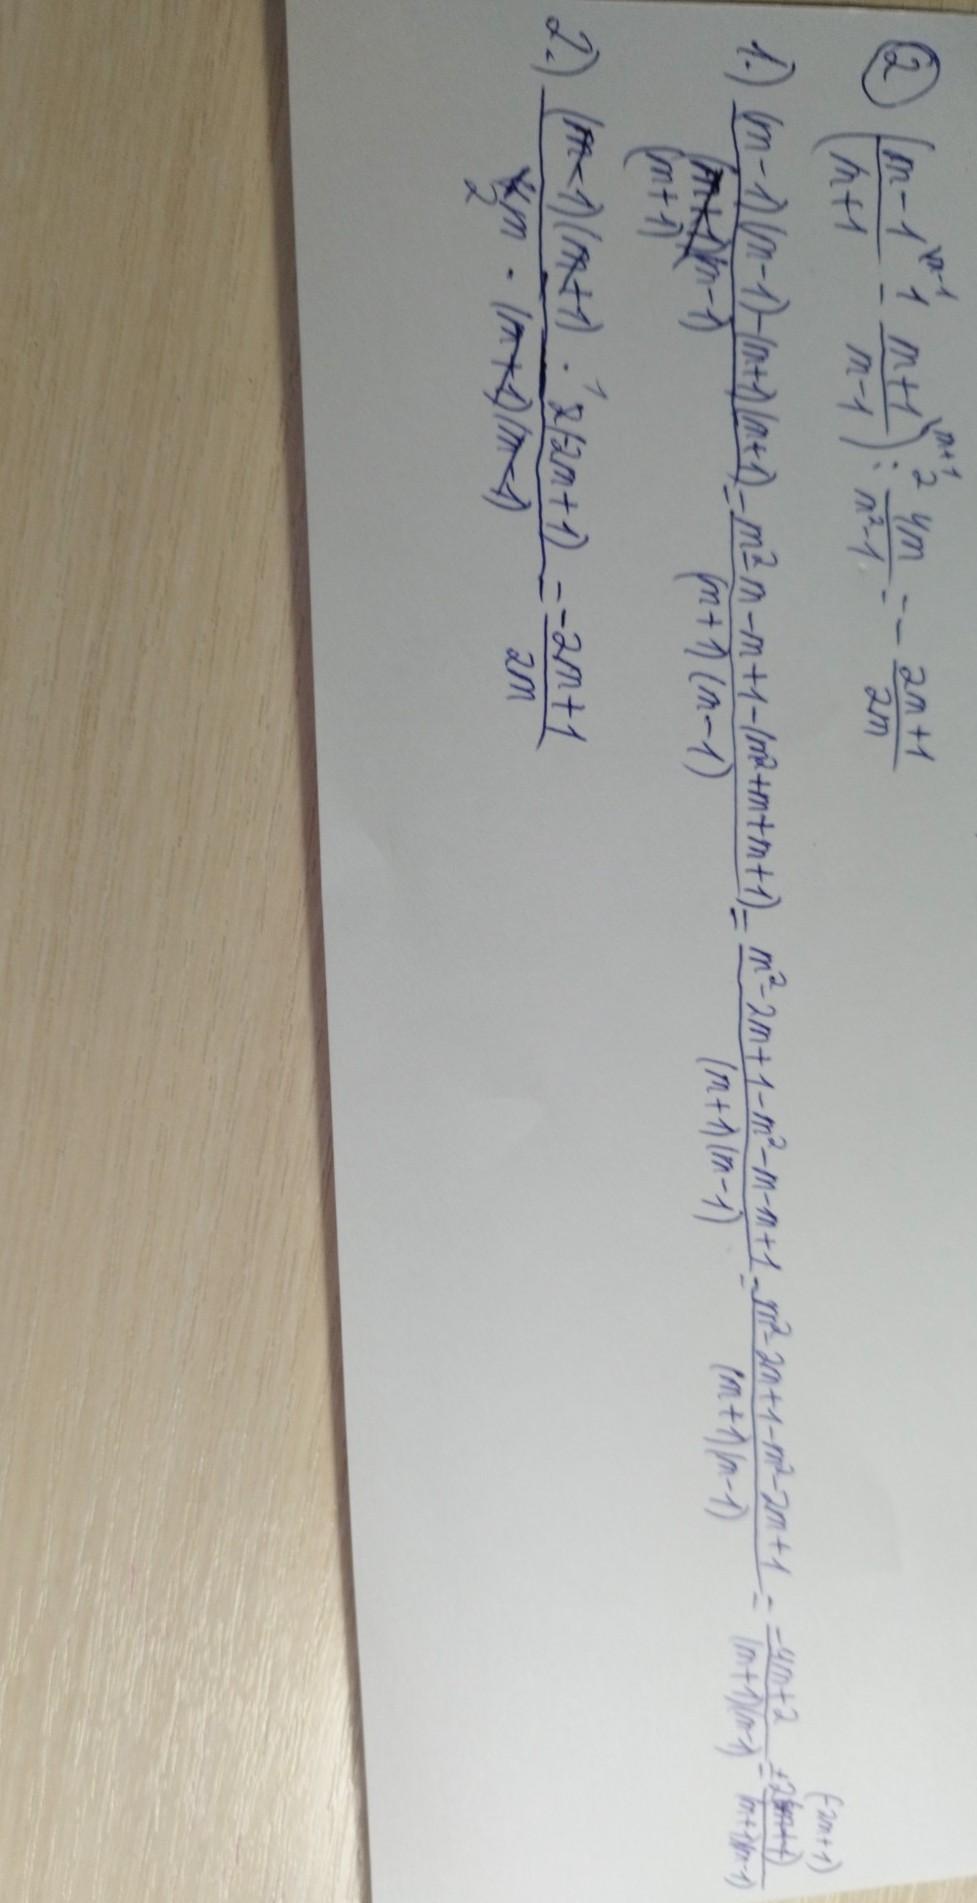 ② (m-1/m+1 \m-1 - m+1/m-1 \m+1) : 4m/m²-1 = - 2m+1/2m
1.) (m-1)(m-1)-(m+1)(m+1)/(m+1)(m-1) = m²-m-m+1-(m²+m+m+1)/(m+1)(m-1) = m²-2m+1-m²-m-m+1/(m+1)(m-1) = m²-2m+1-m²-2m+1/(m+1)(m-1) = -4m+2/(m+1)(m-1) = 2(-2m+1)/(m+1)(m-1)
2.) (m-1)(m+1) · 2(-2m+1)/4m · (m+1)(m-1) = -2m+1/2m